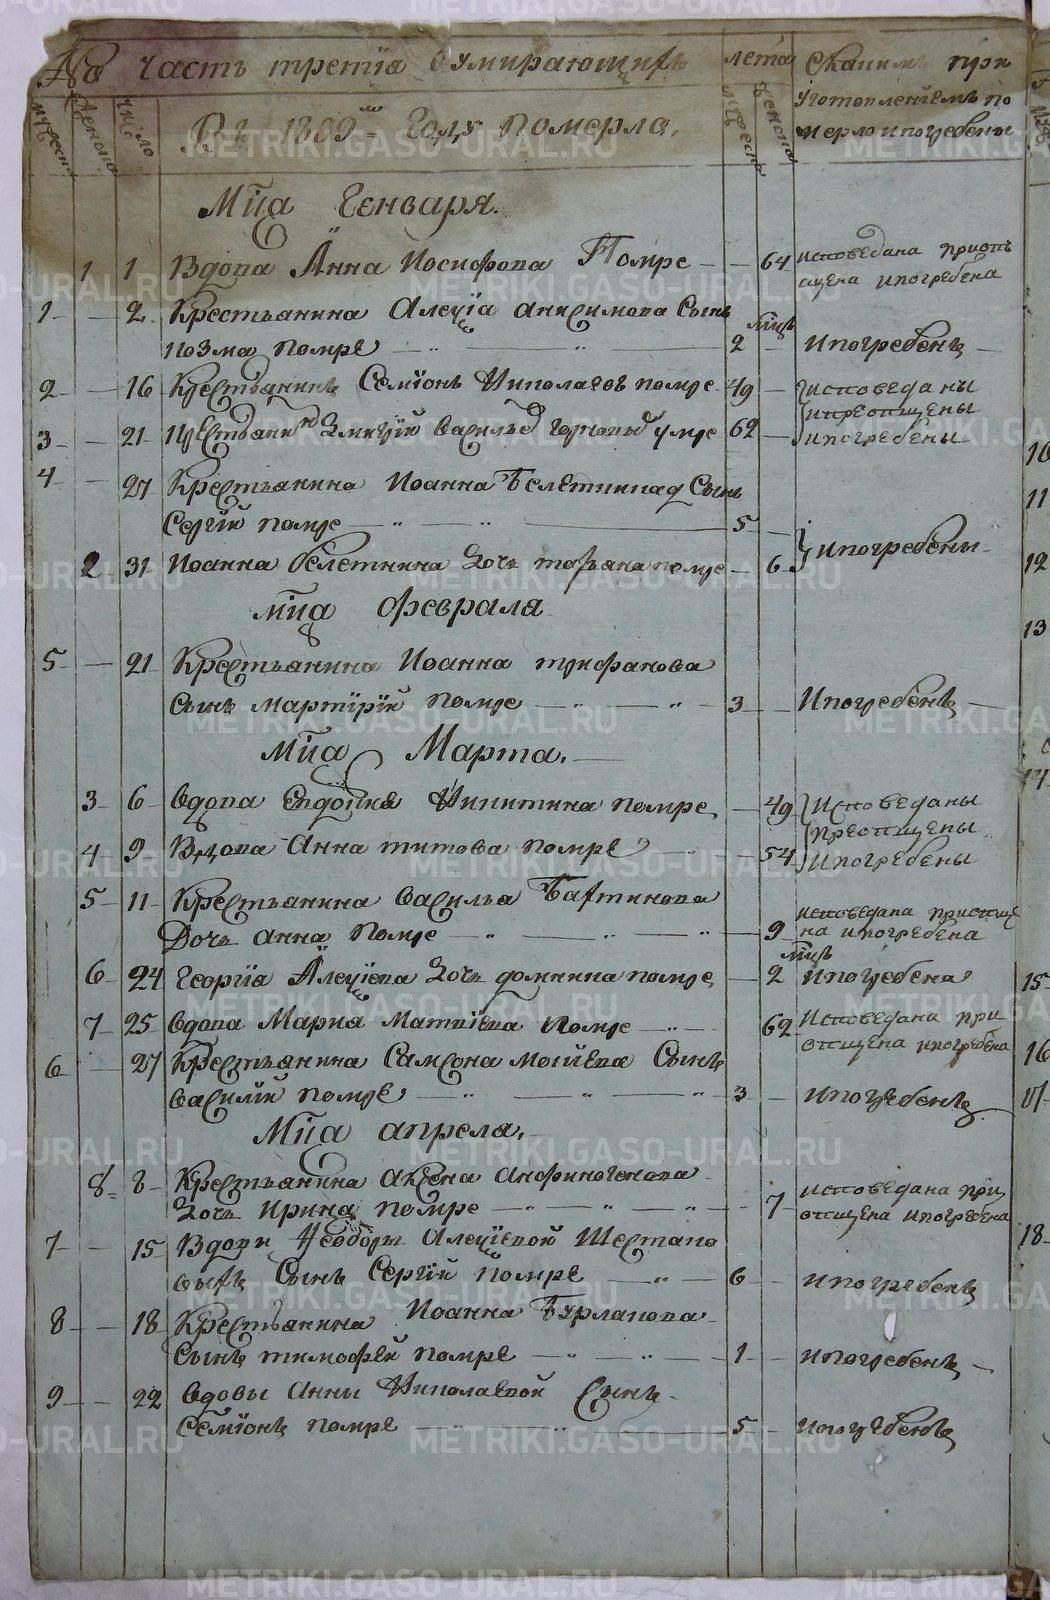 No часть третїа оумирающихъ лета
Скакимъ при
уготовленїемъ по
мерло ипогребены
мужеска женска число
Въ 1809мъ Году Померло,
Мца Генваря.
1 1 Вдова Анна Иосифова Помре 64 исповедана приоб
щена ипогребена
1 2 Крестьянина Алеѯїа анисимова Сынъ
Козма помре 2 мцъ ипогребенъ
2 16 Крестьянинъ Семїонъ Николаевъ помре 49 исповеданы
ипреопщены
3 21 Василье умре 62 ипогребены
4 27 Крестьянина Иоанна Белеткина Сынъ
Сергїй помре 5
2 31 Иоанна белеткина дочь помре 6 ипогребены
мца февраля
5 21 Крестьянина Иоанна трифанова
Сынъ мартирїй помре 3 ипогребенъ
мца Марта.
3 6 вдова евдокия Никитина помре 49 исповеданы
преопщены
4 9 Вдова Анна титова помре 54 ипогребены
5 11 Крестьянина василья Бахтинова
Дочь анна помре 9 исповедана приопще
на ипогребена
6 24 Георгїа Алеѯїева дочь домнина помре 2 мцъ ипогребена
7 25 вдова Мария Матвїева помре 62 исповедана при
опщена ипогребена
6 27 Крестьянина Самсона моисїева Сынъ
василїй помре 3 ипогребенъ
Мца апреля.
8 8 Крестьянина аксена анфиногенова
дочь Ирина помре 7 исповедана при
опщена ипогребена
7 15 Вдовы Феодоры Алеѯїевой Шестако
выхъ Сынъ Сергїй помре 6 ипогребенъ
8 18 Крестьянина Иоанна Бурлакова
Сынъ тимофей помре 1 ипогребенъ
9 22 вдовы анны Николаевой Сынъ
Семїонъ помре 5 ипогребенъ
10
11
12
13
14
15
16
17
18
METRIKI.GASO-URAL.RU